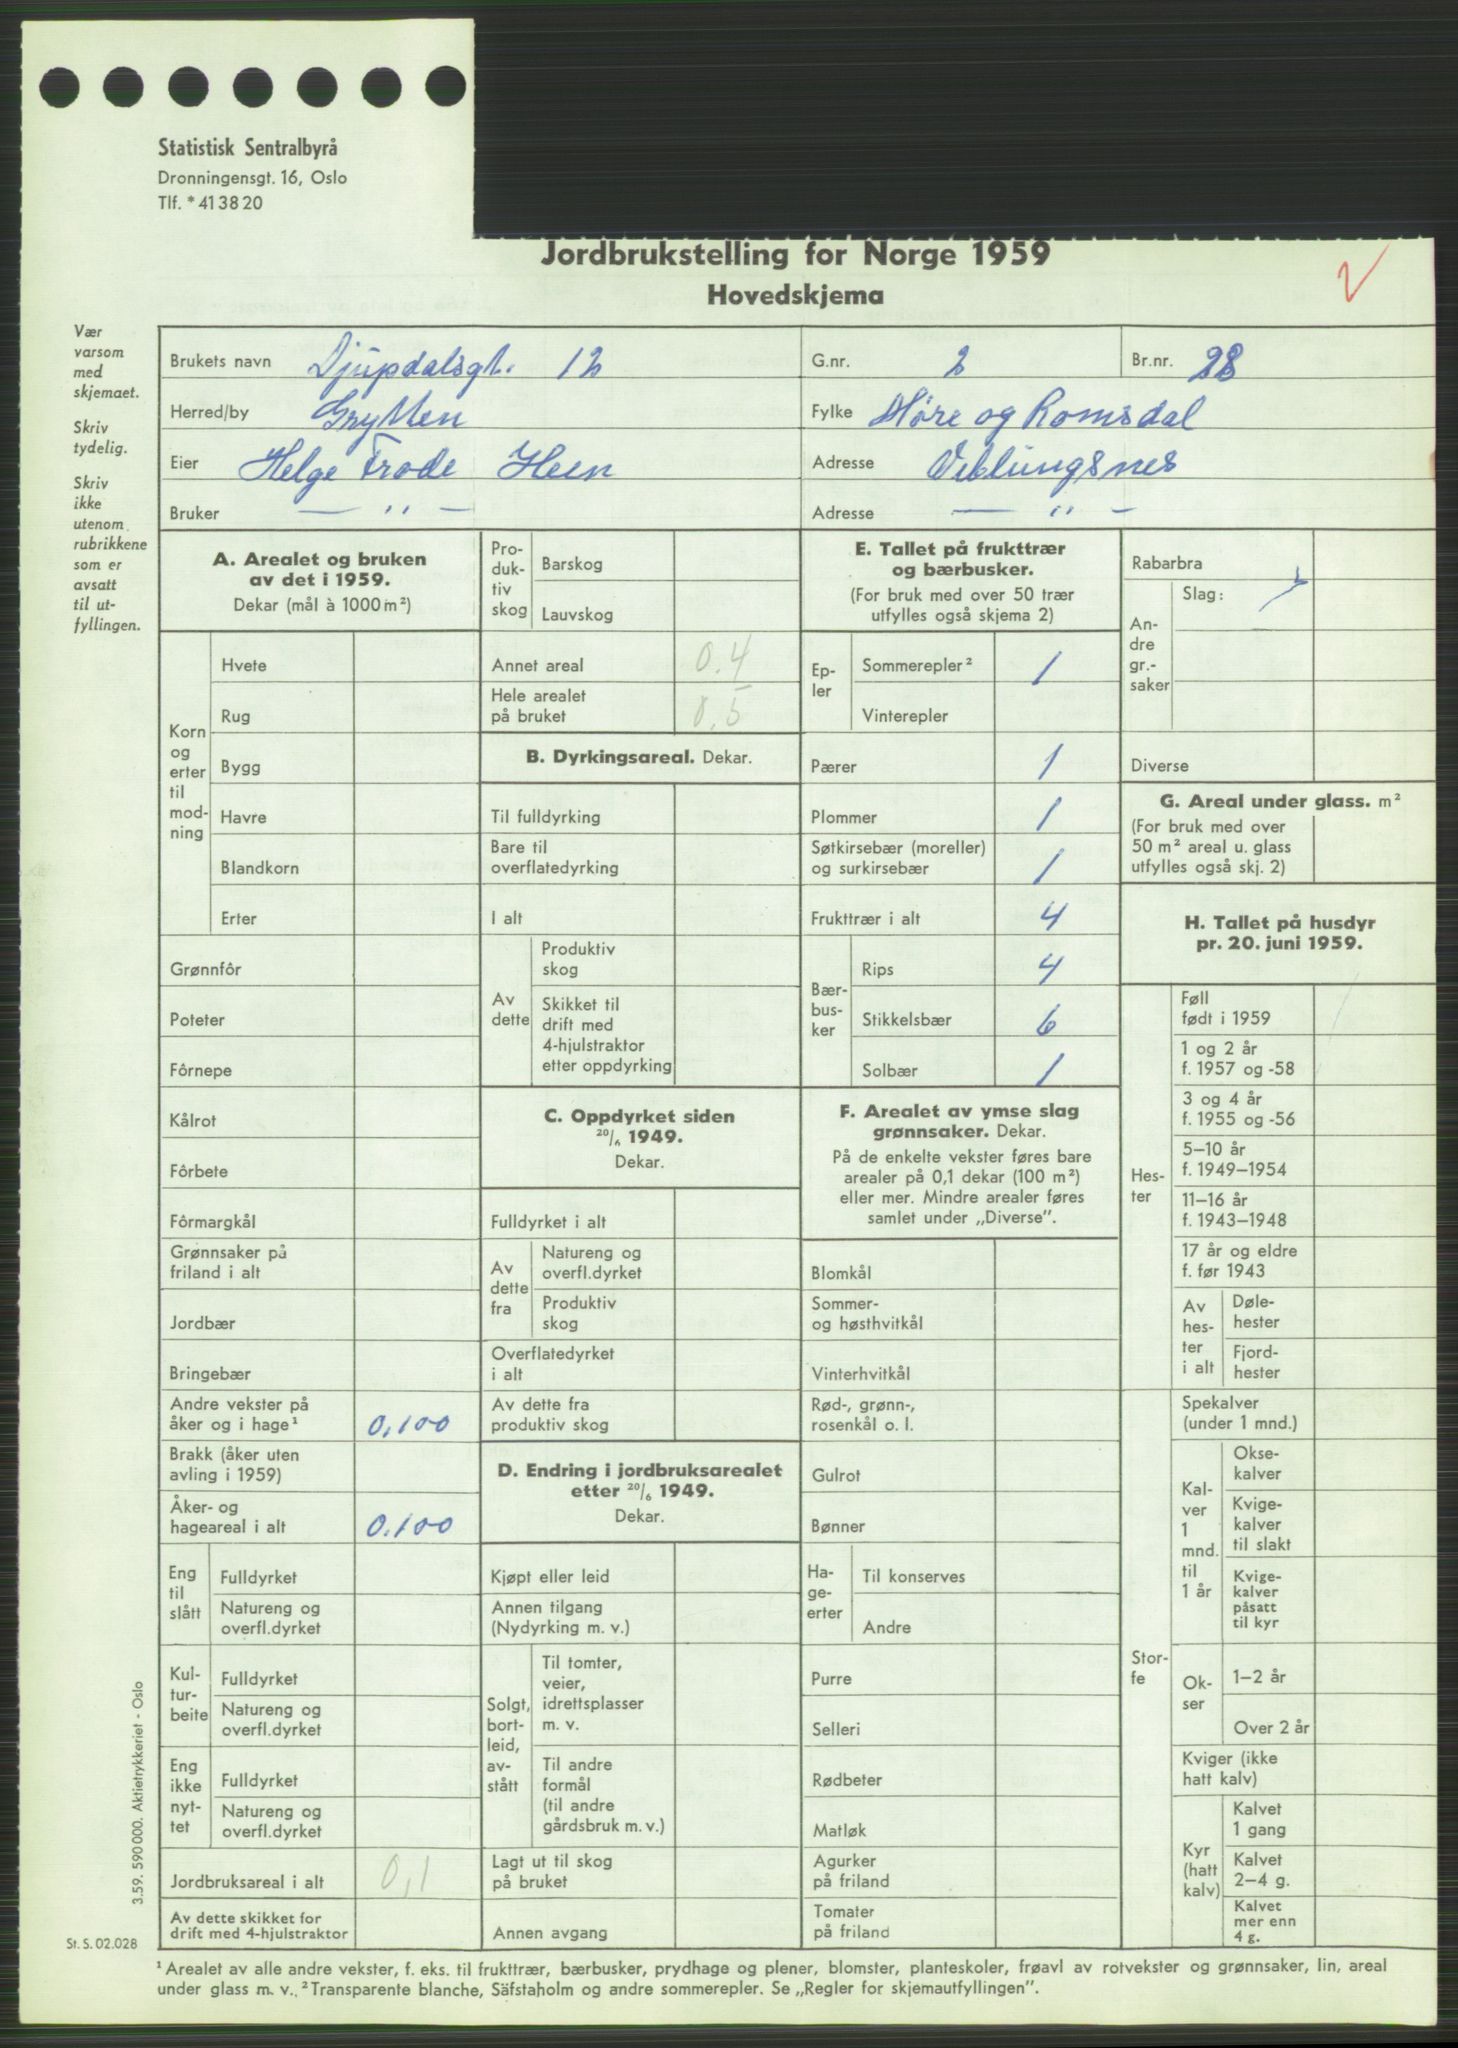 Statistisk Sentralbyrå
Dronningensgt. 16, Oslo
Tlf. * 41 38 20
Jordbrukstelling for Norge 1959
Hovedskjema
Vær
varsom
med
skjemaet.
Skriv
tydelig.
Skriv
ikke
utenom
rubrikkene
som er
avsatt
til ut-
fyllingen.
Brukets navn Djupdalsgt. 12 G.nr. 2 Br.nr. 28
Herred/by Grytten Fylke Møre og Romsdal
Eier Helge Frode Heen Adresse Veblungsnes
Bruker — " — Adresse — " —
A. Arealet og bruken
av det i 1959.
Dekar (mål à 1000 m²)
Korn
og
erter
til
mod-
ning
Hvete
Rug
Bygg
Havre
Blandkorn
Erter
Grønnfôr
Poteter
Fôrnepe
Kålrot
Fôrbete
Fôrmargkål
Grønnsaker på
friland i alt
Jordbær
Bringebær
Andre vekster på
åker og i hage¹ 0,100
Brakk (åker uten
avling i 1959)
Åker- og
hageareal i alt 0.100
Eng
til
slått
Fulldyrket
Natureng og
overfl.dyrket
Kul-
tur-
beite
Fulldyrket
Natureng og
overfl.dyrket
Eng
ikke
nyt-
tet
Fulldyrket
Natureng og
overfl.dyrket
Jordbruksareal i alt 0,1
Av dette skikket for
drift med 4-hjulstraktor
Pro-
duk-
tiv
skog
Barskog
Lauvskog
Annet areal 0.4
Hele arealet
på bruket 0.5
B. Dyrkingsareal. Dekar.
Til fulldyrking
Bare til
overflatedyrking
I alt
Av
dette
Produktiv
skog
Skikket til
drift med
4-hjulstraktor
etter oppdyrking
C. Oppdyrket siden
20/6 1949.
Dekar.
Fulldyrket i alt
Av
dette
fra
Natureng og
overfl.dyrket
Produktiv
skog
Overflatedyrket
i alt
Av dette fra
produktiv skog
D. Endring i jordbruksarealet
etter 20/6 1949.
Dekar.
Kjøpt eller leid
Annen tilgang
(Nydyrking m. v.)
Solgt,
bort-
leid,
av-
stått
Til tomter,
veier,
idrettsplasser
m. v.
Til andre
formål
(til andre
gårdsbruk m. v.)
Lagt ut til skog
på bruket
Annen avgang
E. Tallet på frukttrær
og bærbusker.
(For bruk med over 50 trær
utfylles også skjema 2)
Ep-
ler
Sommerepler² 1
Vinterepler
Pærer 1
Plommer 1
Søtkirsebær (moreller)
og surkirsebær 1
Frukttrær i alt 4
Bær-
bus-
ker
Rips 4
Stikkelsbær 6
Solbær 1
F. Arealet av ymse slag
grønnsaker. Dekar.
På de enkelte vekster føres bare
arealer på 0,1 dekar (100 m²)
eller mer. Mindre arealer føres
samlet under „Diverse".
Blomkål
Sommer-
og høsthvitkål
Vinterhvitkål
Rød-, grønn-,
rosenkål o. l.
Gulrot
Bønner
Ha-
ge-
erter
Til konserves
Andre
Purre
Selleri
Rødbeter
Matløk
Agurker
på friland
Tomater
på friland
Rabarbra
An-
dre
gr.-
saker
Slag:
Diverse
G. Areal under glass. m²
(For bruk med over
50 m² areal u. glass
utfylles også skj. 2)
H. Tallet på husdyr
pr. 20. juni 1959.
Hes-
ter
Føll
født i 1959
1 og 2 år
f. 1957 og -58
3 og 4 år
f. 1955 og -56
5–10 år
f. 1949–1954
11–16 år
f. 1943–1948
17 år og eldre
f. før 1943
Av
hes-
ter
i alt
Døle-
hester
Fjord-
hester
Stor-
fe
Spekalver
(under 1 mnd.)
Kal-
ver
1
mnd.
til
1 år
Okse-
kalver
Kvige-
kalver
til slakt
Kvige-
kalver
påsatt
til kyr
Ok-
ser
1–2 år
Over 2 år
Kviger (ikke
hatt kalv)
Kyr
(hatt
kalv)
Kalvet
1 gang
Kalvet
2–4 g.
Kalvet
mer enn
4 g.
3.59. 590 000. Aktietrykkeriet - Oslo
St. S. 02.028
¹ Arealet av alle andre vekster, f. eks. til frukttrær, bærbusker, prydhage og plener, blomster, planteskoler, frøavl av rotvekster og grønnsaker, lin, areal
under glass m. v. ² Transparente blanche, Säfstaholm og andre sommerepler. Se „Regler for skjemautfyllingen".